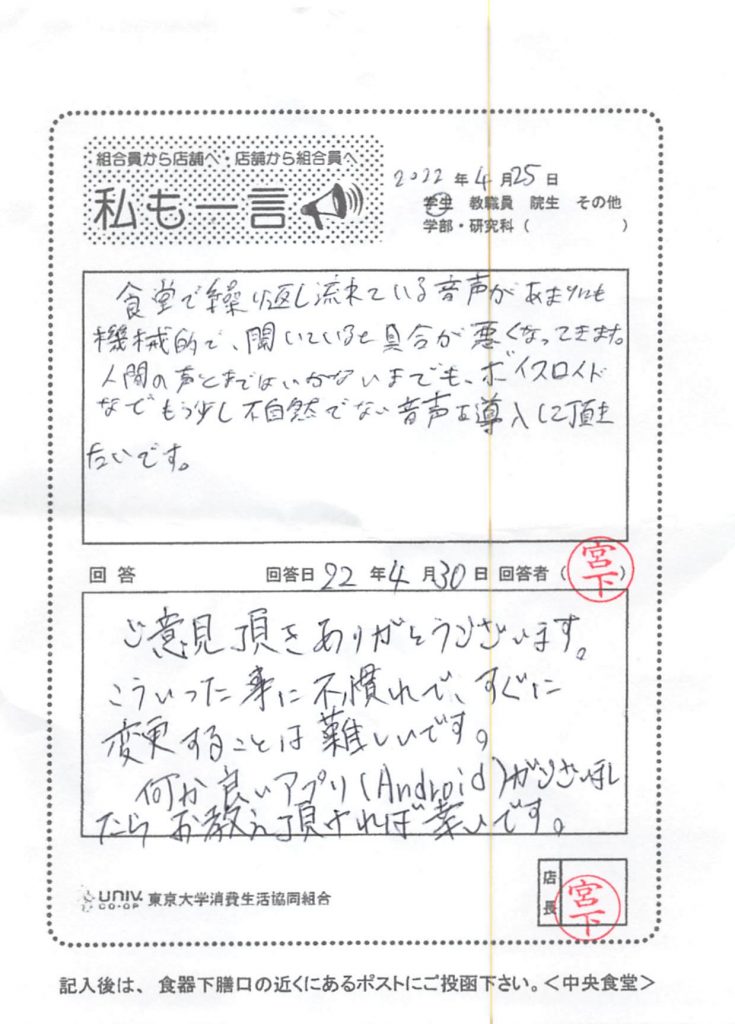 組合員から店舗へ・店舗から組合員へ
私も一言
2022年4月25日
学生 教職員 院生 その他
学部・研究科（　　　　　　）
食堂で繰り返し流れている音声があまりにも
機械的で、聞いていると具合が悪くなってきます。
人間の声とまではいかないまでも、ボイスロイド
などもう少し不自然でない音声を導入して頂き
たいです。
回答 回答日 22年4月30日 回答者（宮下）
ご意見頂きありがとうございます。
こういった事に不慣れで、すぐに
変更することは難しいです。
何か良いアプリ(Android)がございまし
たらお教え頂ければ幸いです。
UNIV. CO-OP 東京大学消費生活協同組合
店長 宮下
記入後は、食器下膳口の近くにあるポストにご投函下さい。＜中央食堂＞